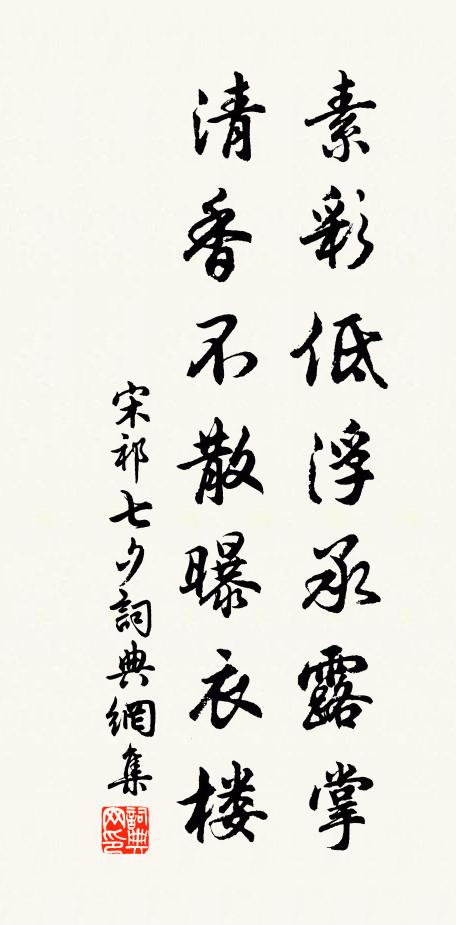 素彩低浮承露掌
清香不散曝衣楼
宋祁七夕詞典網集
詞典网印